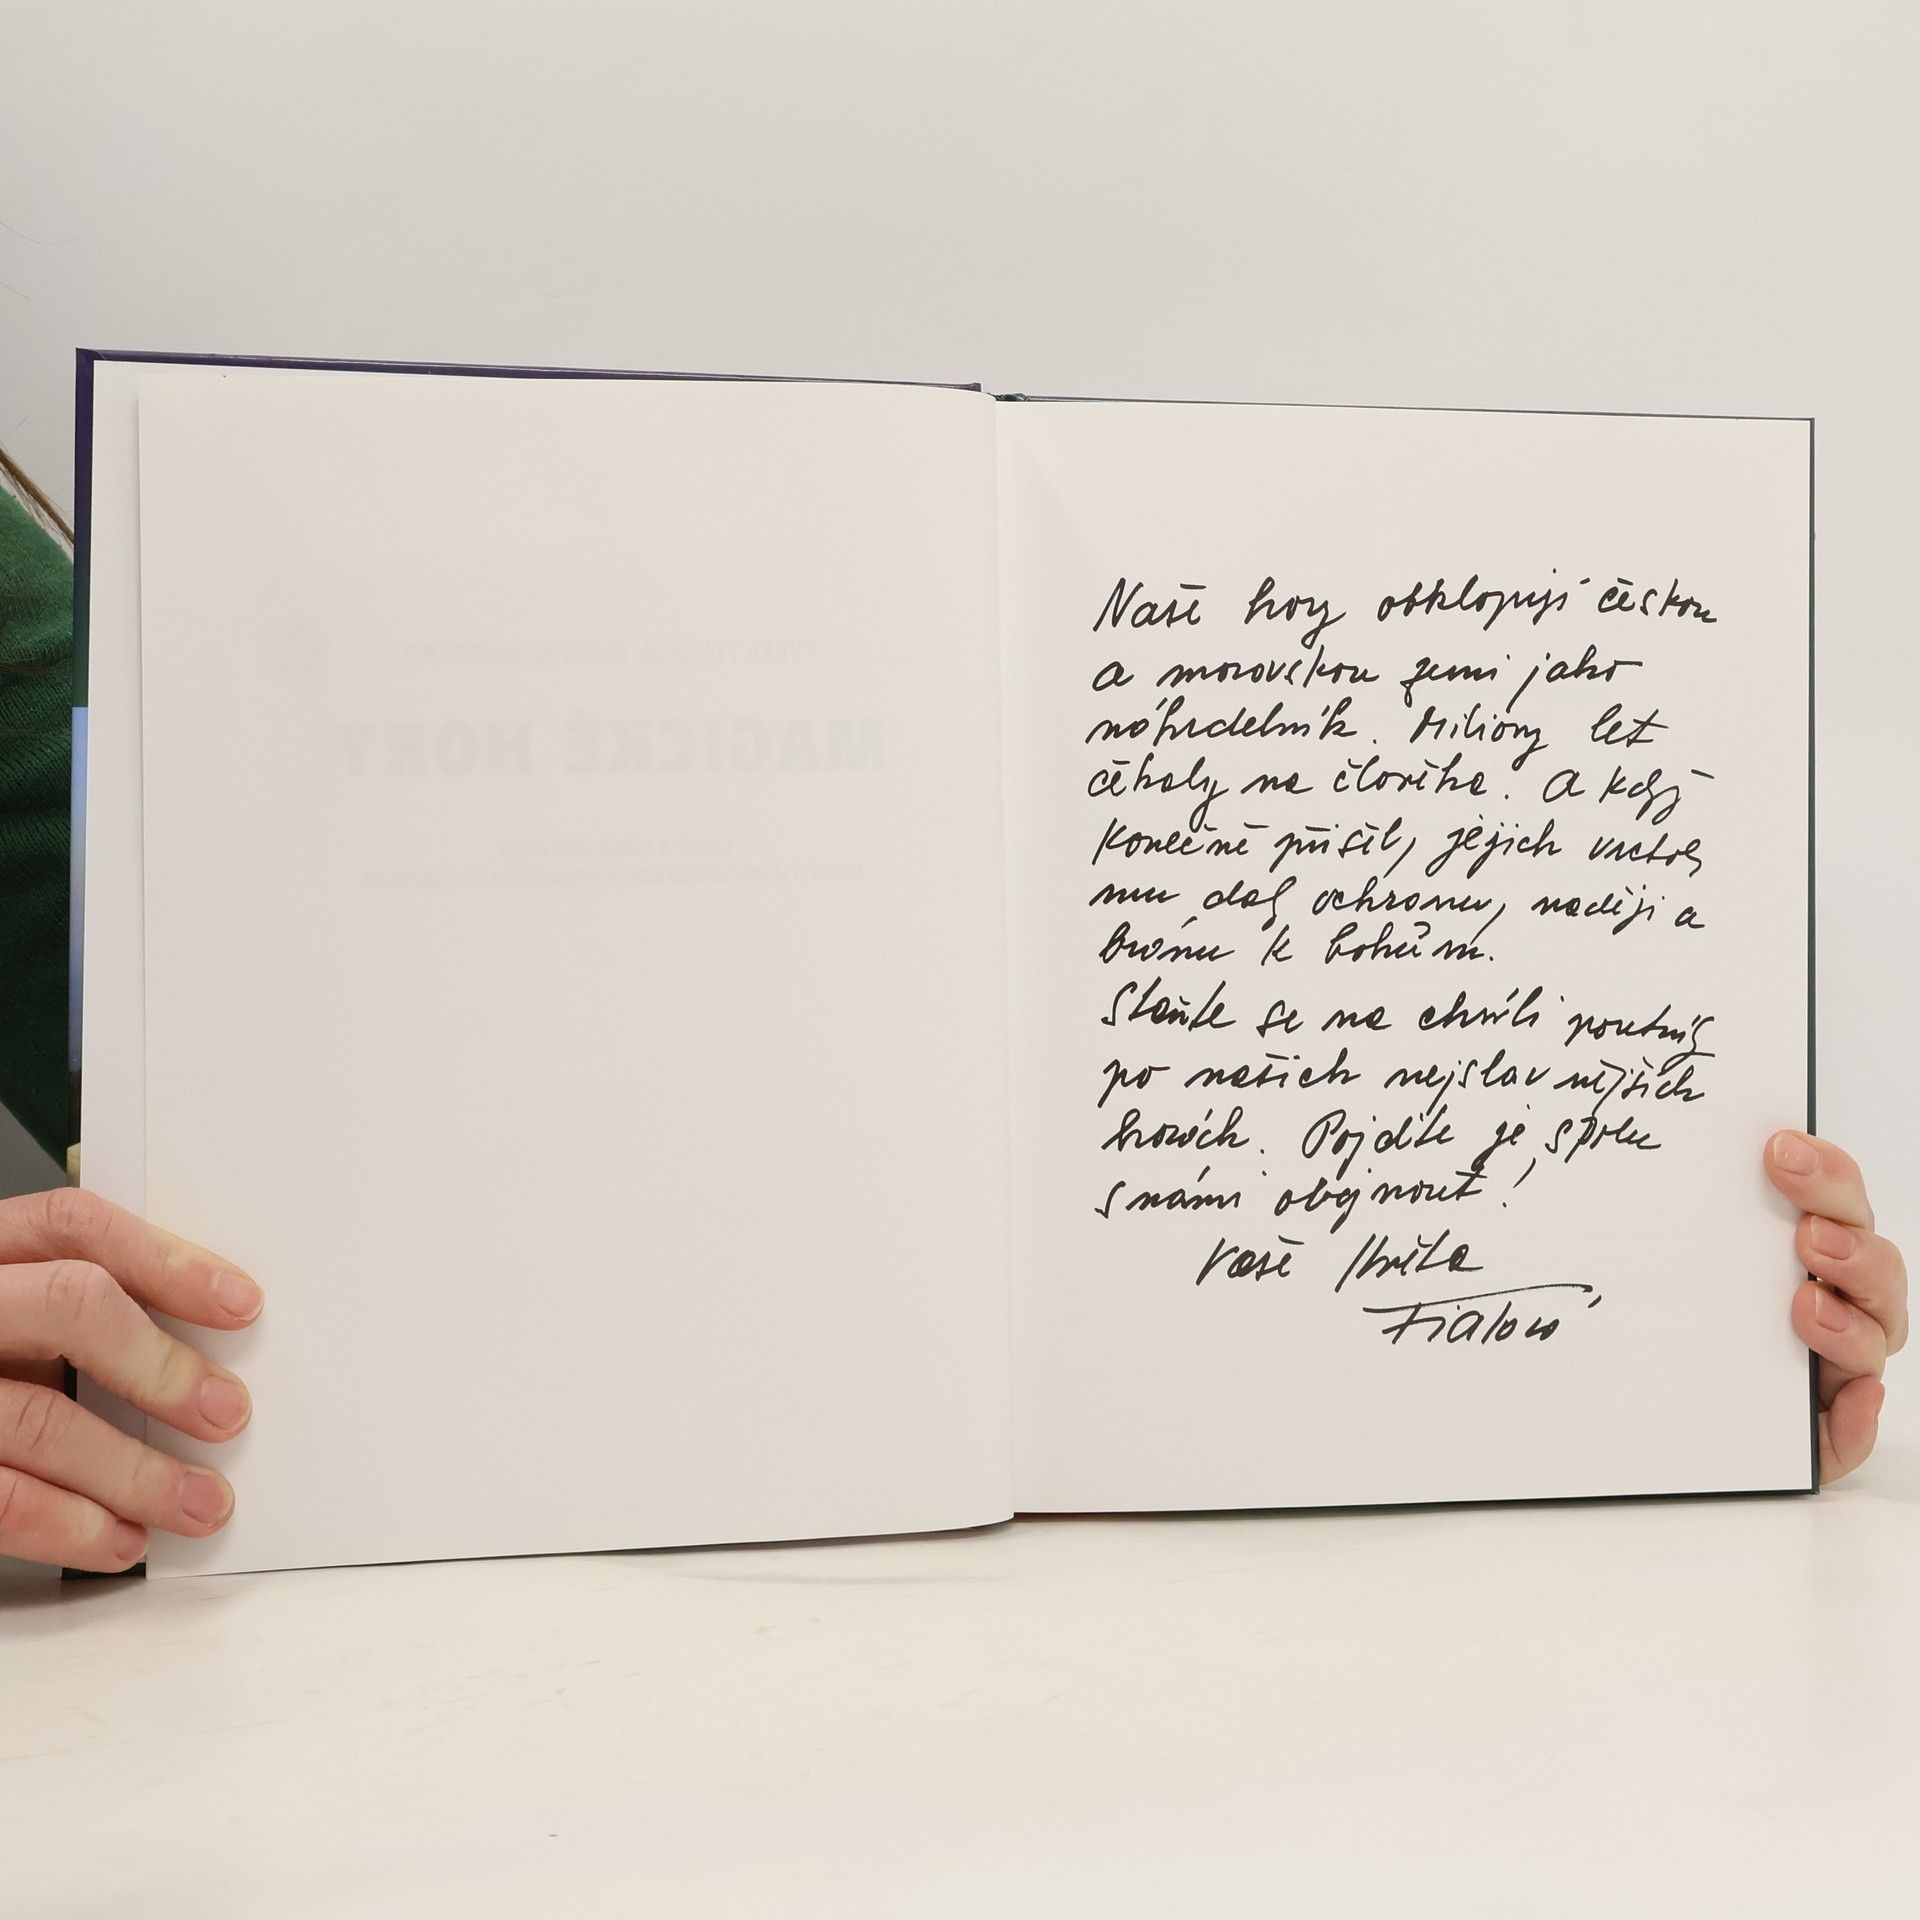 MAGICKÉ HORY
Naše hory obklopují českou
a moravskou zemi jako
náhrdelník. Miliony let
čekaly na člověka. A když
konečně přišel, jejich vrcholy
mu daly ochranu, naději a
bránu k bohům.
Staňte se na chvíli poutníky
po našich nejslavnějších
horách. Pojďte je spolu
s námi obejmout!
Vaše Květa
Fialová